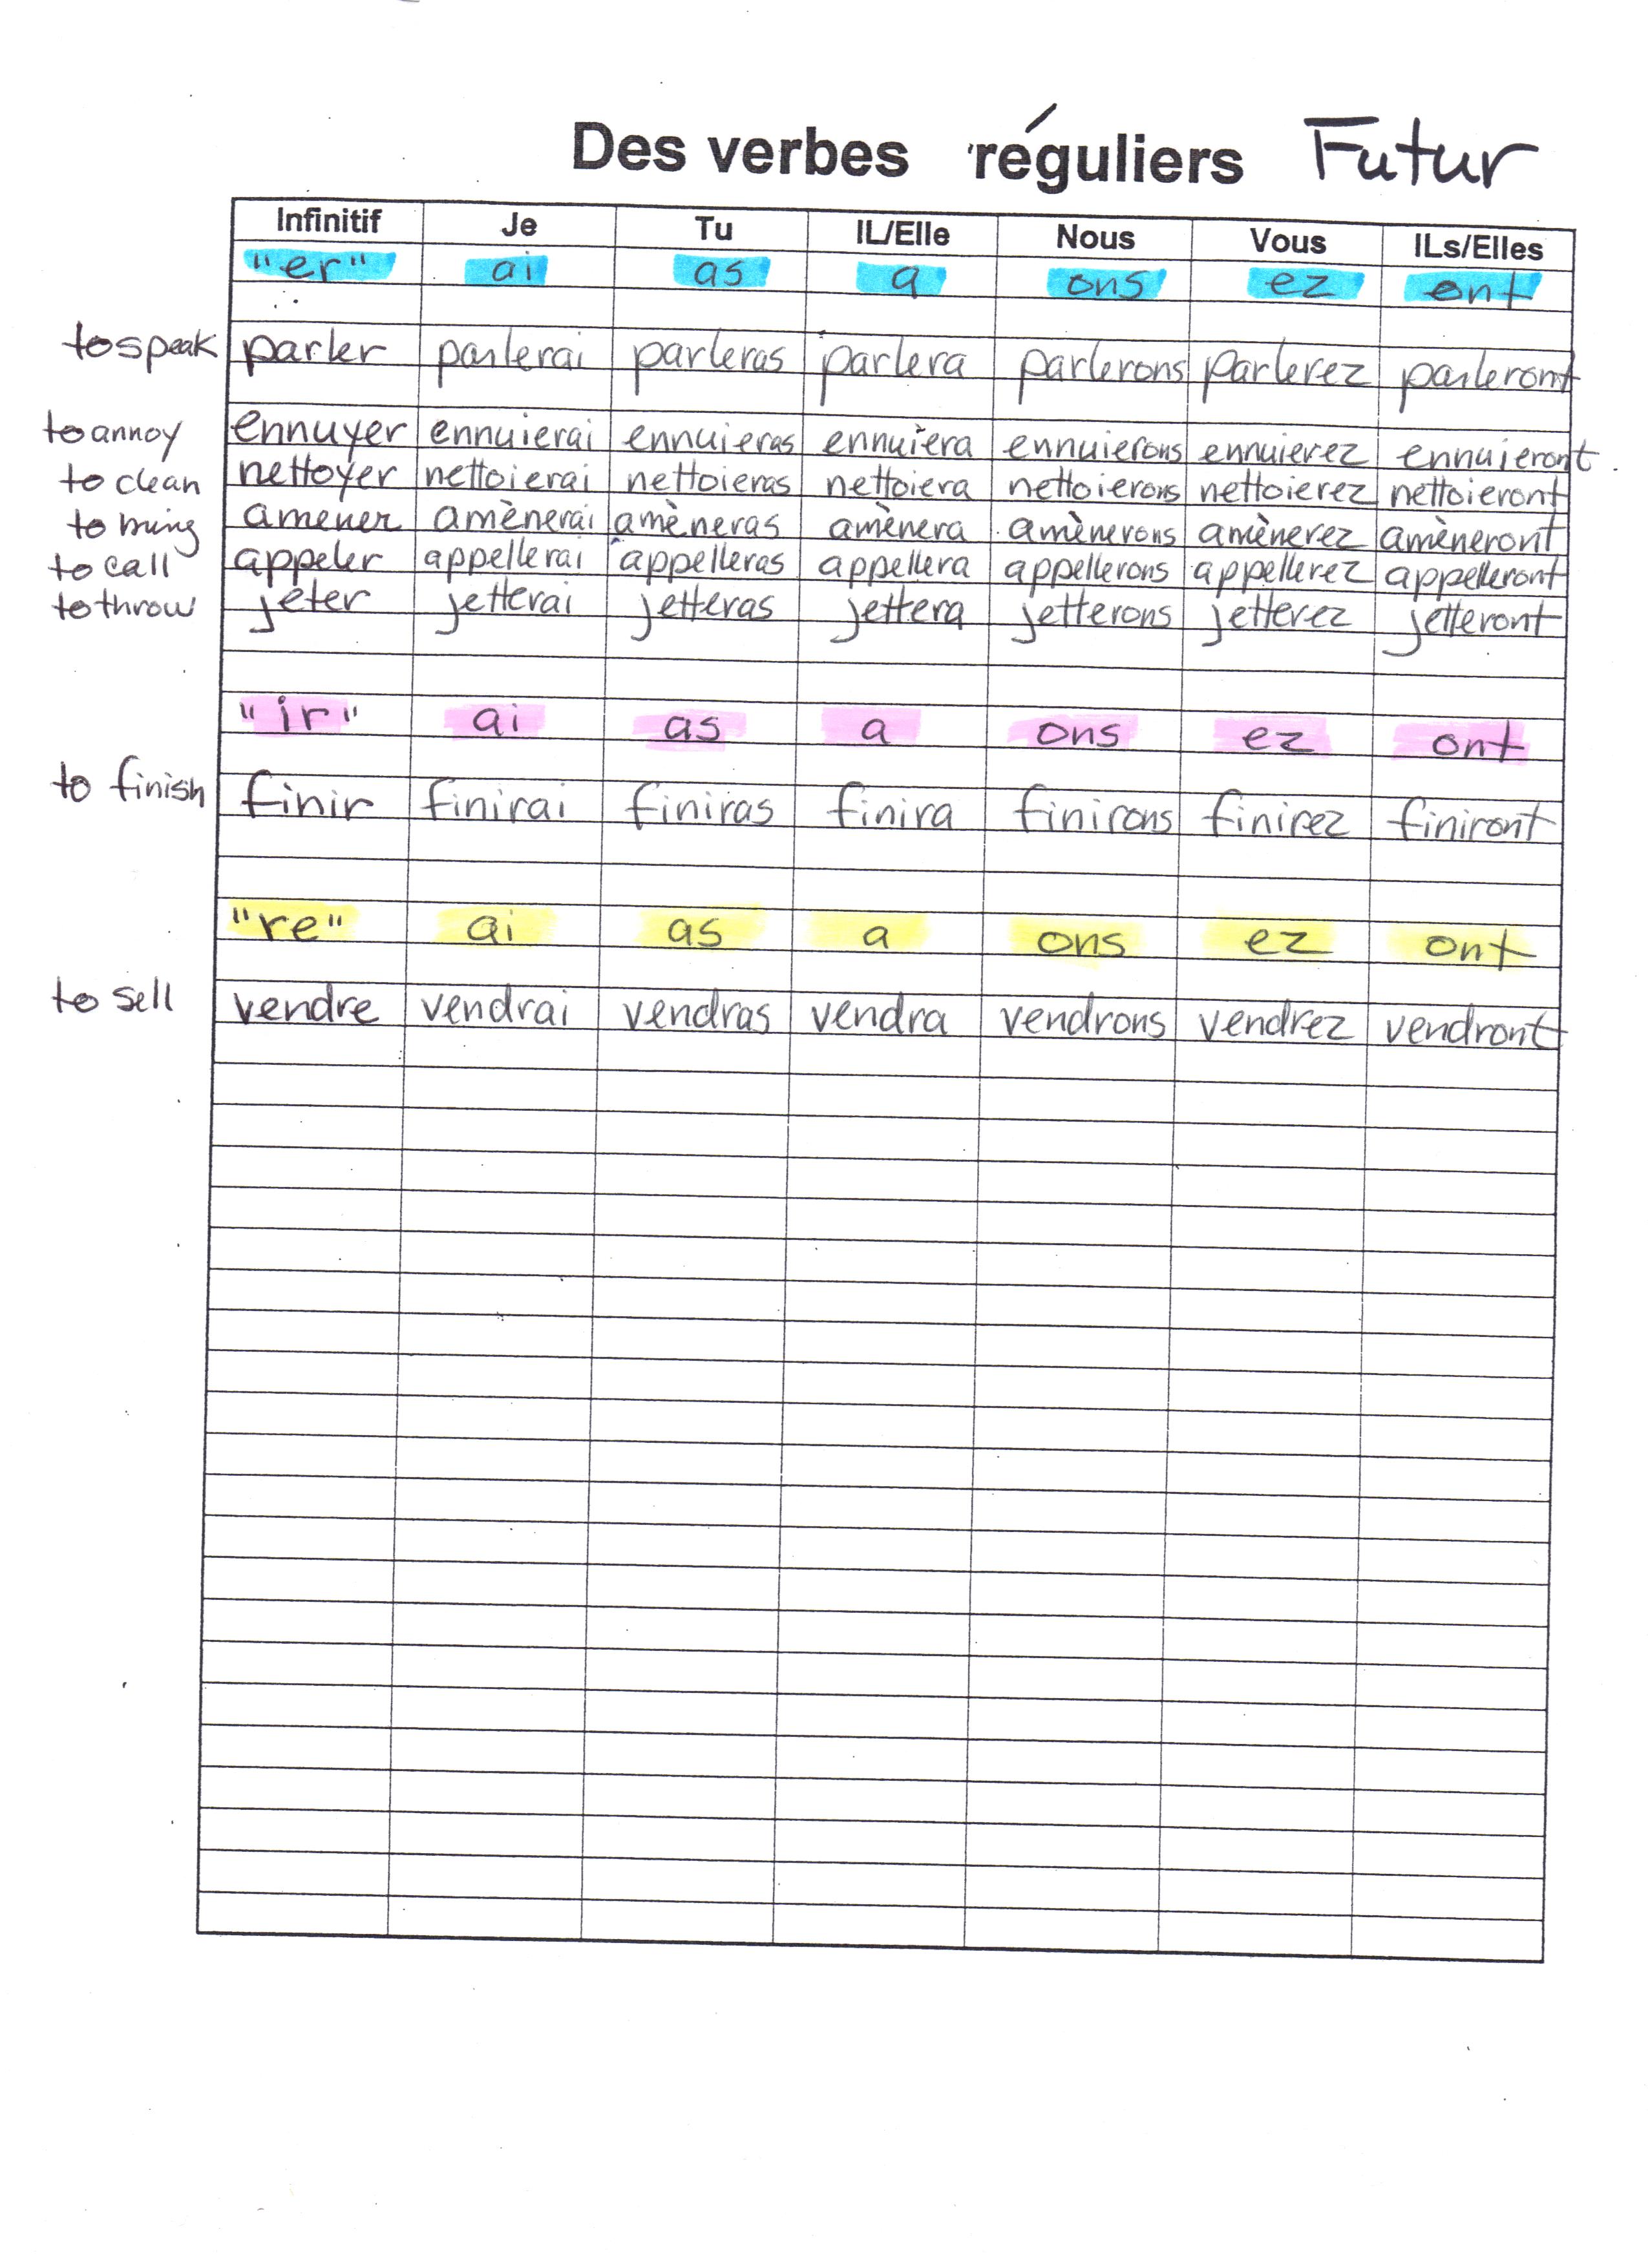 Des verbes réguliers Futur
Infinitif Je Tu IL/Elle Nous Vous ILs/Elles
"er" ai as a ons ez ont
to speak parler parlerai parleras parlera parlerons parlerez parleront
to annoy ennuyer ennuierai ennuieras ennuiera ennuierons ennuierez ennuieront
to clean nettoyer nettoierai nettoieras nettoiera nettoierons nettoierez nettoieront
to bring amener amènerai amèneras amènera amènerons amènerez amèneront
to call appeler appellerai appelleras appellera appellerons appellerez appelleront
to throw jeter jetterai jetteras jettera jetterons jetterez jetteront
"ir" ai as a ons ez ont
to finish finir finirai finiras finira finirons finirez finiront
"re" ai as a ons ez ont
to sell vendre vendrai vendras vendra vendrons vendrez vendront